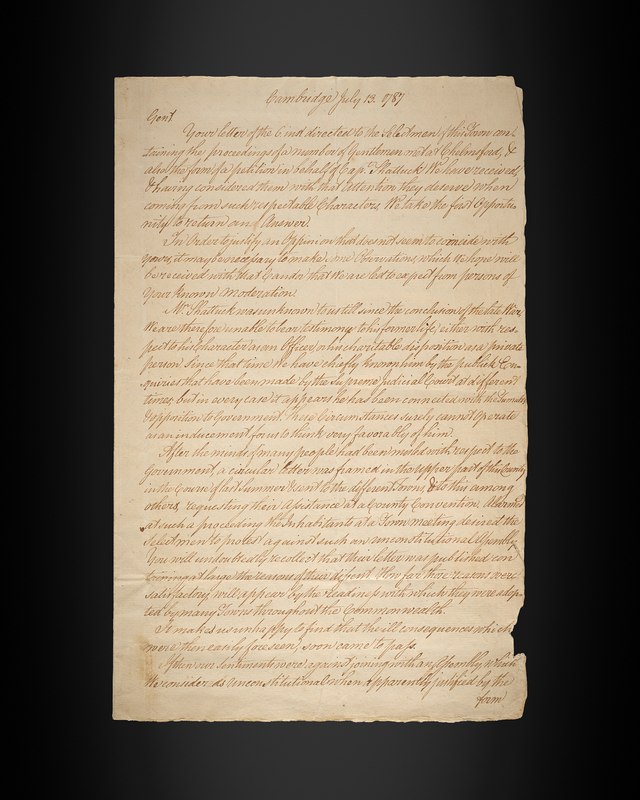 Cambridge July 13. 1787
Gent.
Your letter of the 6 inst directed to the Selectmen of this Town con-
taining the proceedings of a number of Gentlemen met at Chelmsford, &
also the form of a petition in behalf of Cap. Shattuck We have received,
& having considered them with that attention they deserve when
coming from such respectable Characters, We take the first Opportu-
nity to return an Answer.
In Order to justify an Oppinion that does not seem to coincide with
yours, it may be necessary to make some Observations, which We hope will
be received with that Candor that We are led to expect from persons of
your known moderation.
Mr. Shattuck was unknown to us till since the conclusion of the late War,
We are therefore unable to bear testimony to his former life, either with res-
pect to his character as an Officer, or his charitable disposition as a private
person. Since that time We have chiefly known him by the publick En-
quiries that have been made by the Supreme Judicial Court at different
times, but in every case it appears he has been connected with the Tumults
& opposition to Government. These Circumstances surely cannot Operate
as an inducement for us to think very favorably of him.
After the minds of many people had been misled with respect to the
Government, a circular letter was framed in the upper part of this County
in the Course of last Summer & sent to the different Towns, & to this among
others, requesting their Assistance at a County Convention. Alarmed
at such a proceeding the Inhabitants at a Town meeting desired the
Selectmen to protest against such an unconstitutional Assembly
You will undoubtedly recollect that their letter was published con
taining at large the reasons of their dissent. How far those reasons were
satisfactory, will appear by the readiness with which they were adop-
ted by many Towns throughout the Commonwealth.
It makes us unhappy to find that the ill consequences which
were then early foreseen, soon came to pass.
When our sentiments were against joining with an Assembly which
We considered as Unconstitutional when apparently justified by the
form